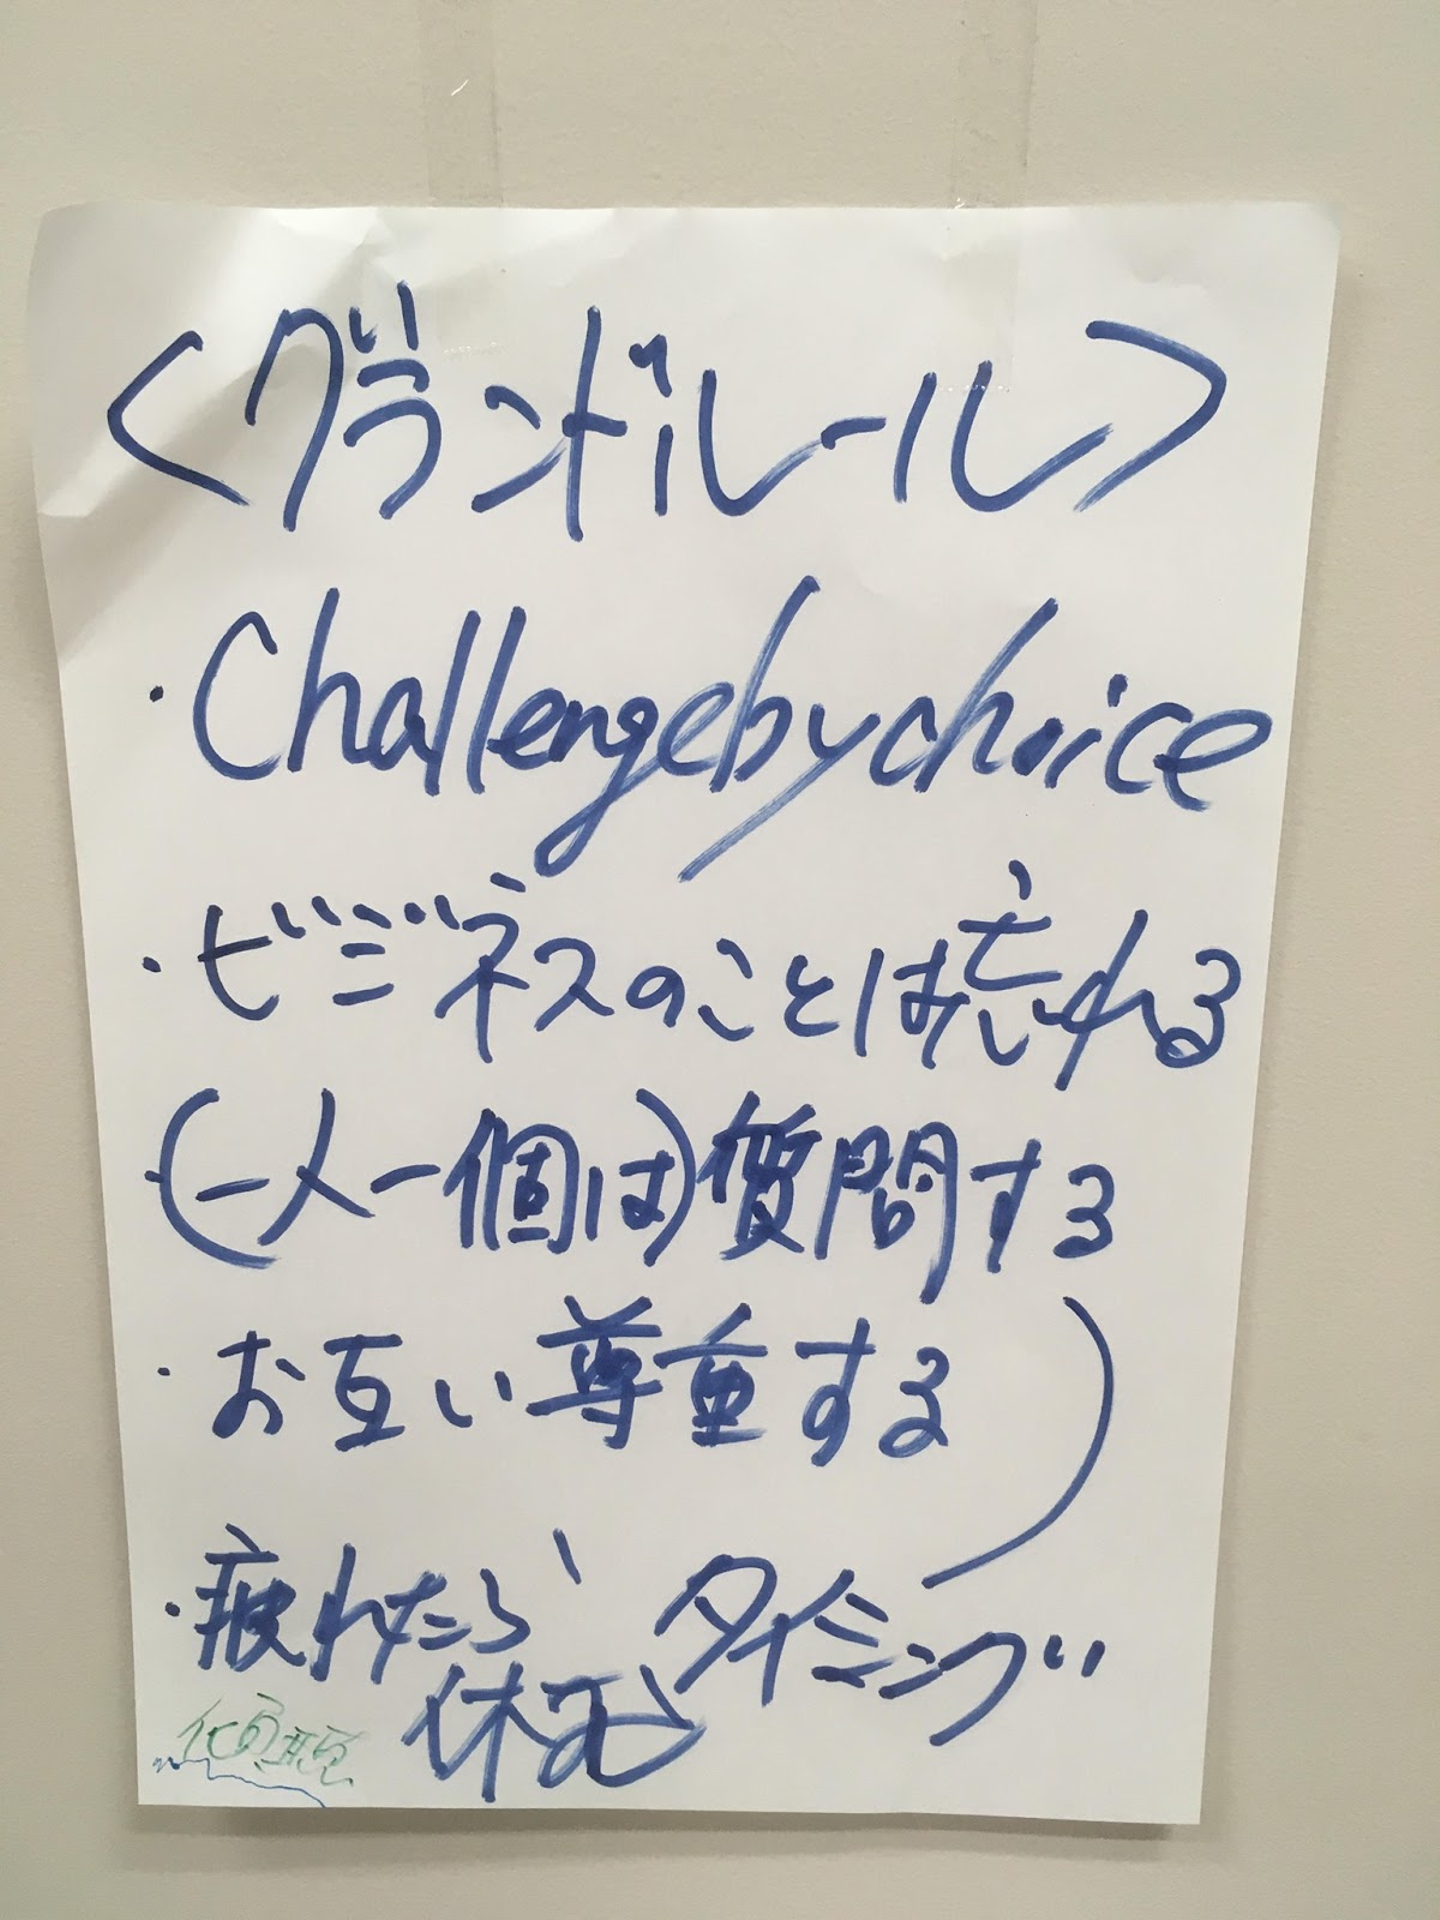 <グランドルール>
・Challengebychoice
・ビジネスのことは忘れる
・(一人一個は)質問する
・お互い尊重する
・疲れたら、
休む
タイミング